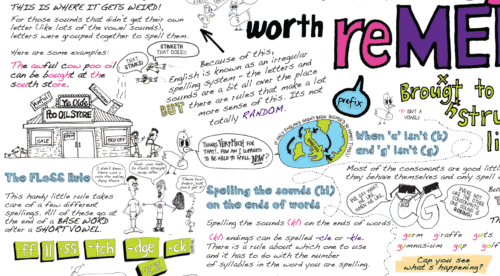 THIS IS WHERE IT GETS WEIRD!
For those sounds that didn't get their own
letter like lots of the vowel sounds),
letters were grouped together to spell them.
Here are some examples:
The awful cow poo oil
can be bought at the
south store.
THAT
STINKS!
STINKETH
THAT DOES!!
Ye Olde
POO OIL STORE
SALE
Because of this,
English is known as an irregular
spelling system - the letters and
sounds are a bit all over the place
BUT there are rules that make a lot
more sense of this. Its not
totally RANDOM.
THANKS VERY MUCH FOR
THAT!... HOW AM I SUPPOSED
TO BE ABLE TO SPELL NOW?
The FLOSS Rule
This handy little rule takes
care of a few different
spellings. All of these go at
the end of a BASE WORD
after a SHORT VOWEL.
-ff
-ll
-ss
-tch
-dge
-ck
Spelling the sounds (kl)
on the ends of words
Spelling the sounds (kl) on the ends of words
(kl) endings can be spelled -cle or -kle.
There is a rule about which one to use
and it has to do with the number
of syllables in the word you are spelling.
worth
reMEM
prefix
Brought to
stru
li
When 'c' isn't (k)
and 'g' isn't (g)
Most of the consonants are good litt
they behave themselves and only spell
G
germ giraffe guts
gymnasium gap golf
Can you see
what's happening?